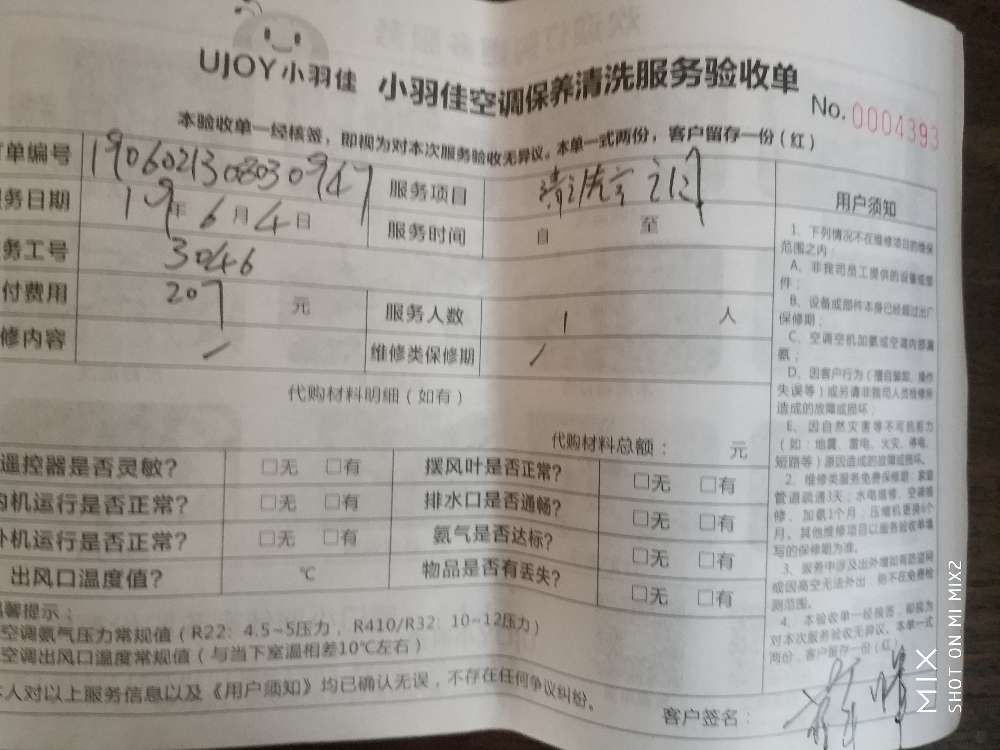 UJOY小羽佳 小羽佳空调保养清洗服务验收单
No. 0004393
本验收单一经核签，即视为对本次服务验收无异议。本单一式两份，客户留存一份（红）
单编号 1906021308030947 服务项目
务日期 19年6月4日 服务时间 自 至
务工号 3046
付费用 207 元 服务人数 1 人
修内容 / 维修类保修期 /
代购材料明细（如有）
代购材料总额： 元
遥控器是否灵敏? □无 □有 摆风叶是否正常? □无 □有
机运行是否正常? □无 □有 排水口是否通畅? □无 □有
机运行是否正常? □无 □有 氨气是否达标? □无 □有
出风口温度值? ℃ 物品是否有丢失? □无 □有
馨提示：
空调氨气压力常规值（R22：4.5~5压力，R410/R32：10~12压力）
空调出风口温度常规值（与当下室温相差10℃左右）
人对以上服务信息以及《用户须知》均已确认无误，不存在任何争议纠纷。
客户签名：
用户须知
1、下列情况不在维修项目的维保
范围之内：
A、非我司员工提供的设备或部
件；
B、设备或部件本身已经超过出厂
保修期；
C、空调空机加氨或空调内部漏
氨；
D、因客户行为（擅自拆卸、操作
失误等）或另请非我司人员维修所
造成的故障或损坏；
E、因自然灾害等不可抗拒力
（如：地震、雷电、火灾、停电、
短路等）原因造成的故障或损坏。
2、维修类服务免费保修期：家庭
管道疏通3天；水电维修、空调维
修、加氨1个月；压缩机更换6个
月。其他维修项目以服务验收单填
写的保修期为准。
3、服务中涉及出外墙如有防盗网
或因高空无法外出，恕不在免费检
测范围。
4、本验收单一经核签，即视为
对本次服务验收无异议。本单一式
两份，客户留存一份（红）
MIX
SHOT ON MI MIX2